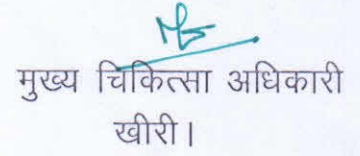 मुख्य चिकित्सा अधिकारी
खीरी।